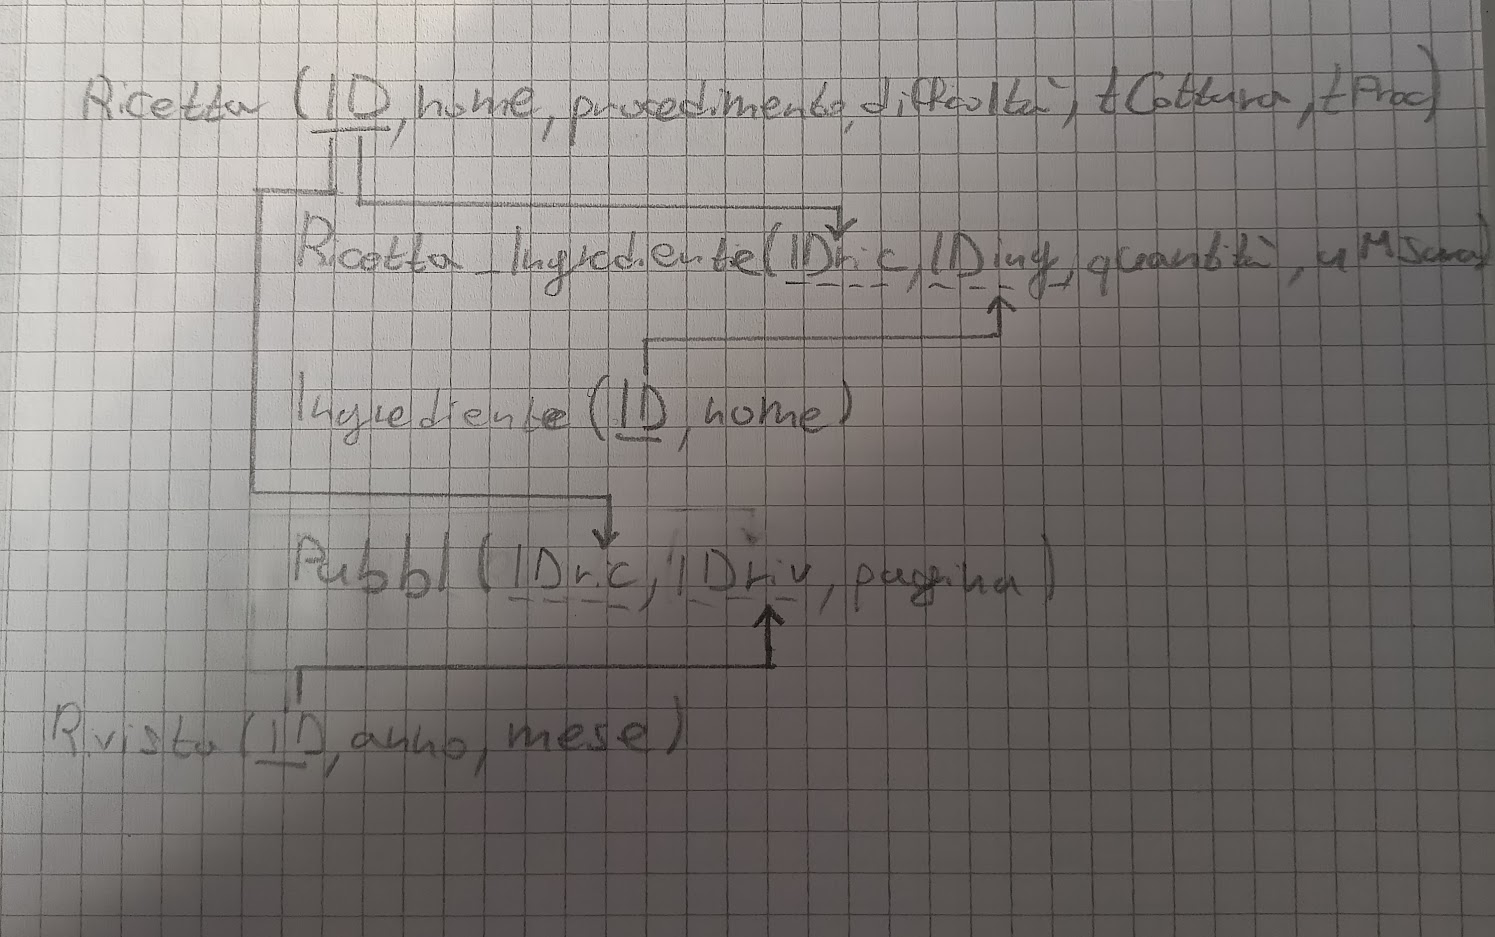 Ricetta (ID, nome, procedimento, difficoltà, tCottura, tProc)
Ricetta_Ingrediente(IDric, IDing, quantità, uMisura)
Ingrediente (ID, nome)
Pubbl (IDric, IDriv, pagina)
Rivista (ID, anno, mese)